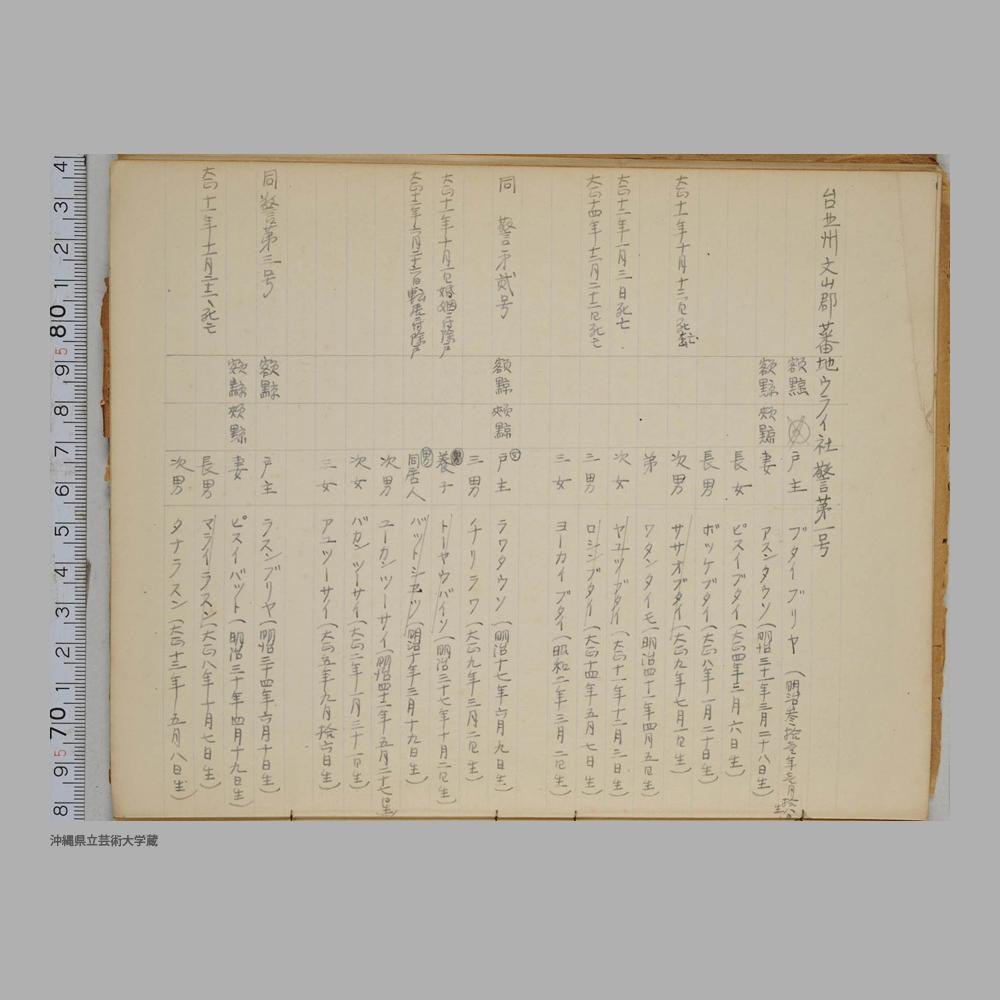 台北州文山郡蕃地ウライ社警第一号
額黥 戸主 ブタイブリヤ (明治参拾壱年壱月拾八日生)
額黥 頰黥 妻 アスンタウソ (明治三十一年三月二十八日生)
長女 ピスイブタイ (大正四年三月六日生)
長男 ボッケブタイ (大正八年一月二十日生)
大正十一年十月十二日死亡 次男 ササオブタイ (大正九年七月一日生)
弟 ワタンタイモ (明治四十一年四月五日生)
大正十二年一月三日死亡 次女 ヤユツブタイ (大正十一年十二月三日生)
大正十四年十二月二十二日死亡 三男 ロシンブタイ (大正十四年五月七日生)
三女 ヨーカイブタイ (昭和二年三月二日生)
同 警第貳号 額黥 頰黥 戸主 ラワタウソ (明治十七年六月九日生)
三男 チリラワ (大正九年三月二日生)
大正十一年十月一日婚姻ニ付除戸 養子 トーヤウバイソ (明治三十七年十月二日生)
大正十二年六月二十六日転居ニ付除戸 同居人 バットシェツ (明治十年三月十九日生)
次男 ユーカンツーサイ (明治四十一年五月二十七日生)
次女 バカンツーサイ (大正二年一月三十一日生)
三女 アユツーサイ (大正五年九月拾六日生)
同 警第三号 額黥 戸主 ラスンブリヤ (明治三十四年六月十日生)
額黥 頰黥 妻 ピスイバット (明治三十年四月十九日生)
大正十一年十一月二十一日死亡 長男 マライラスン (大正八年十月七日生)
次男 タナラスン (大正十三年五月八日生)
沖縄県立芸術大学蔵